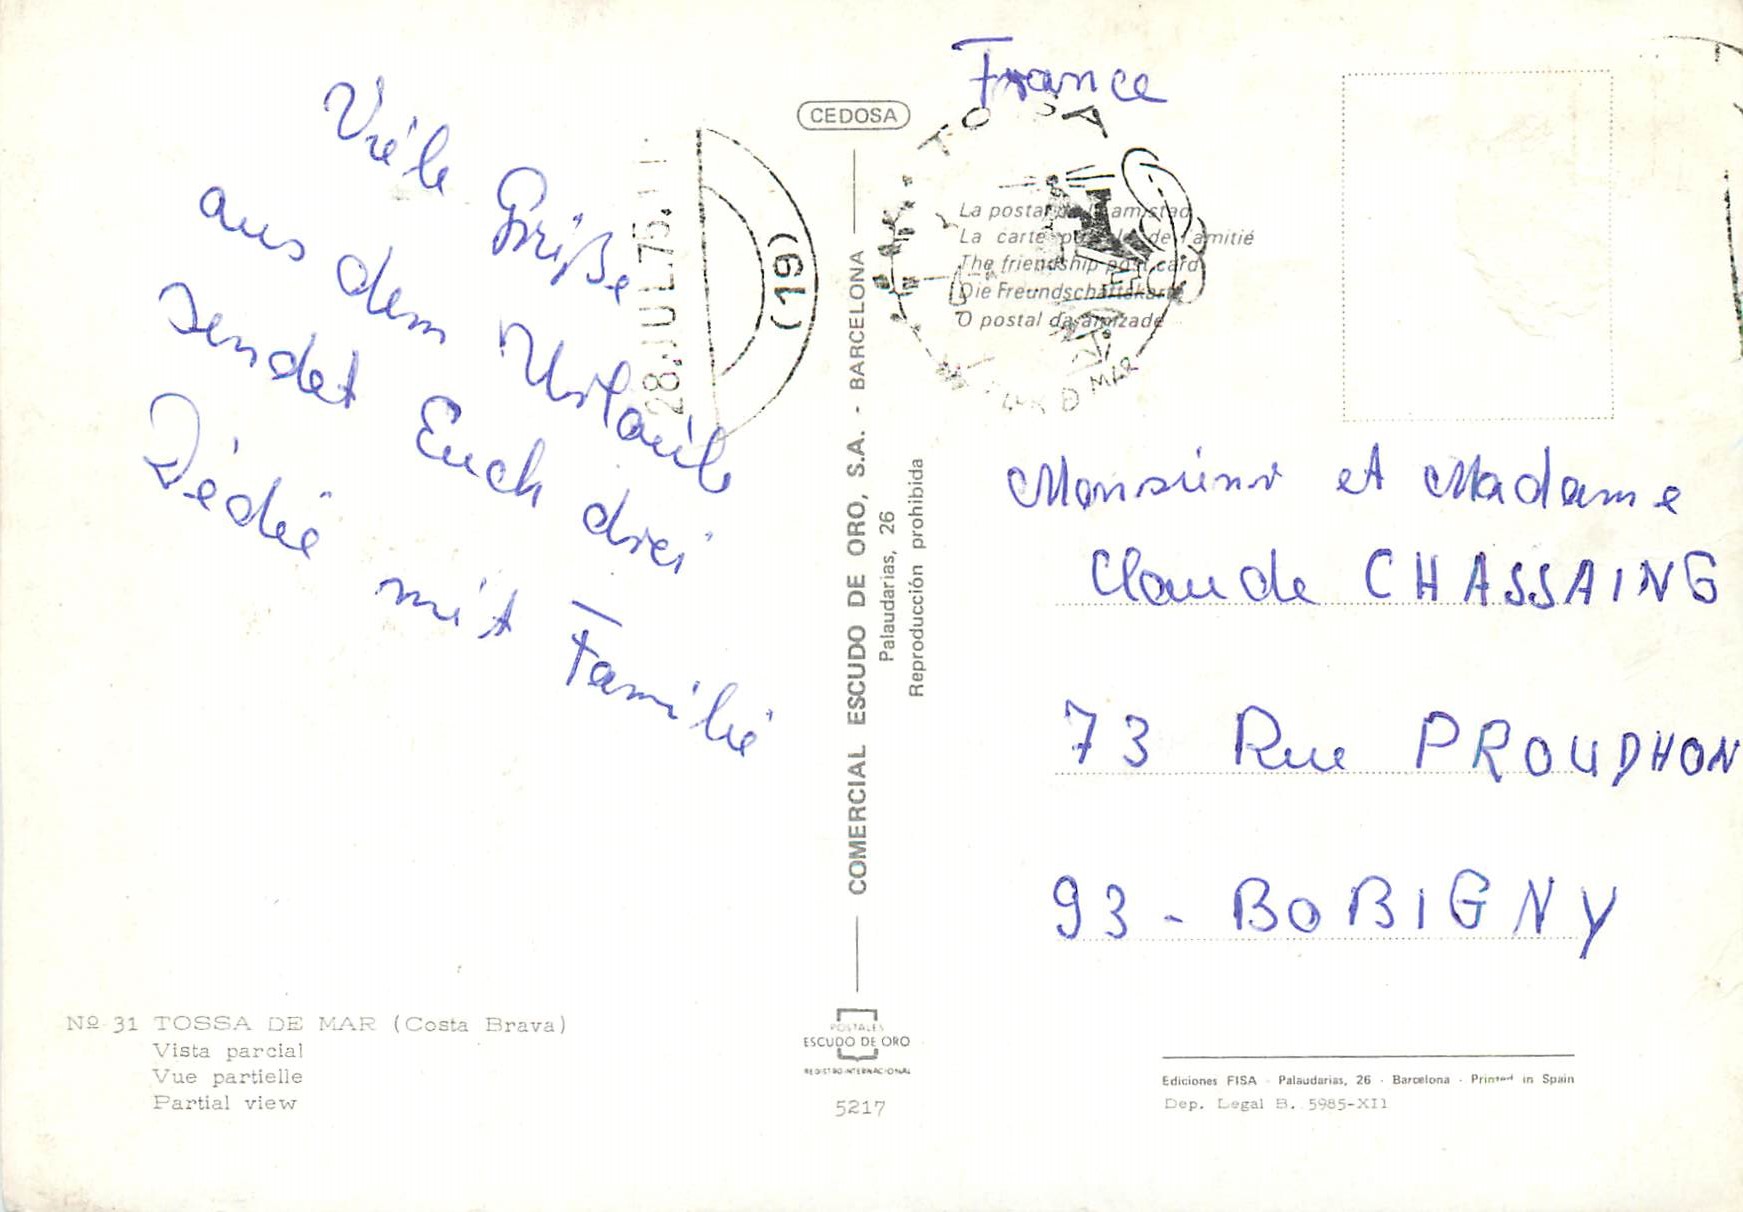 Viele Grüße
aus dem Urlaub
sendet Euch drei
Dédé mit Familie
Nº 31 TOSSA DE MAR (Costa Brava)
Vista parcial
Vue partielle
Partial view
28.JUL.75
(19)
CEDOSA
COMERCIAL ESCUDO DE ORO, S.A. - BARCELONA
Palaudarias, 26
Reproducción prohibida
POSTALES
ESCUDO DE ORO
REGISTRO INTERNACIONAL
5217
France
TOSSA
MAR
La postal de la amistad
La carte postale de l'amitié
The friendship post card
Die Freundschaftskarte
O postal da amizade
Monsieur et Madame
Claude CHASSAING
73 Rue PROUDHON
93 - BOBIGNY
Ediciones FISA - Palaudarias, 26 - Barcelona - Printed in Spain
Dep. Legal B. 5985-XII